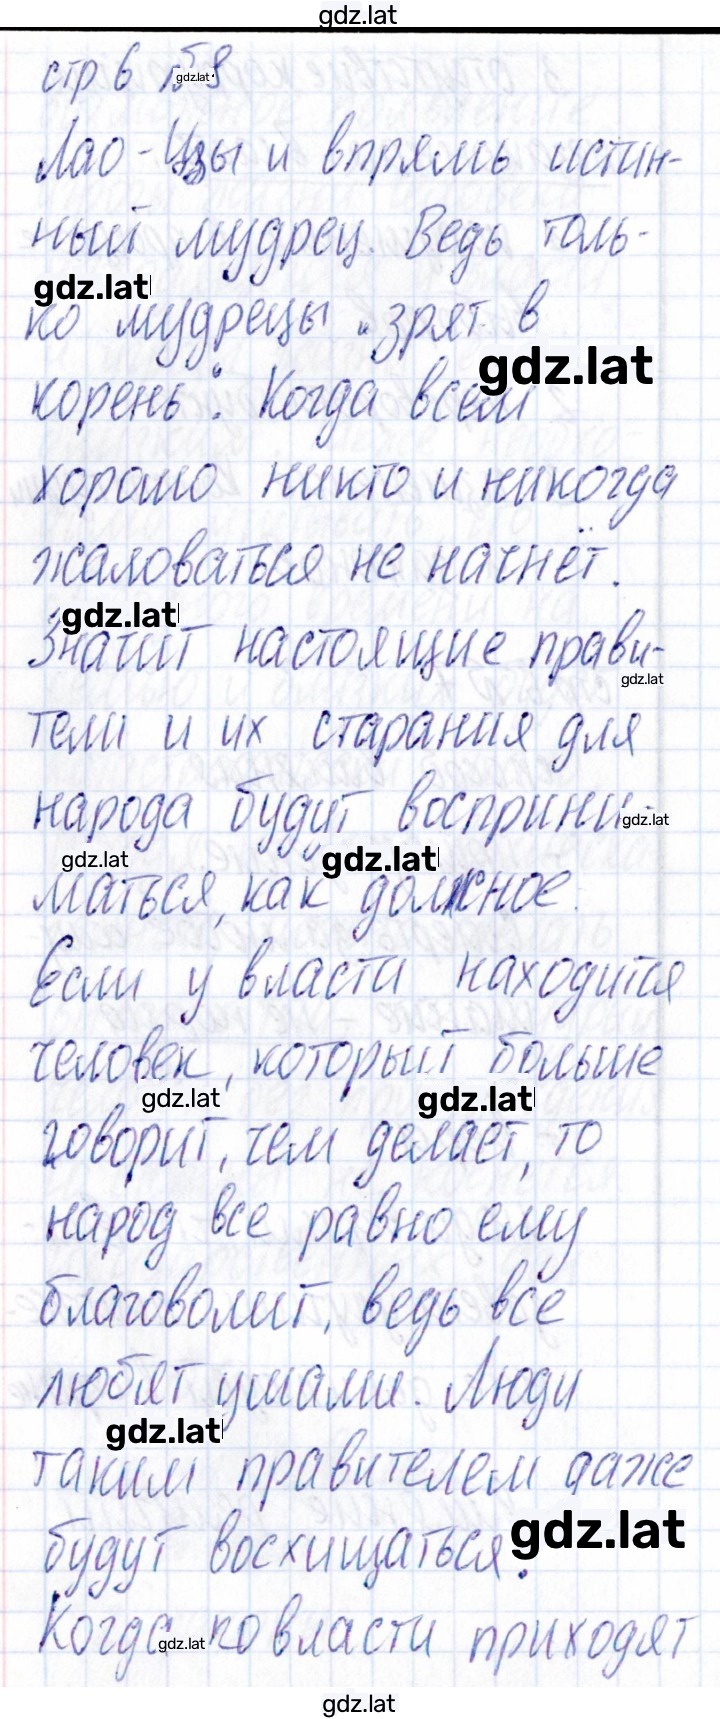 gdz.lat
стр 6
gdz.lat
Лао-Цзы и впрямь истин-
ный мудрец. Ведь толь-
gdz.lat
ко мудрецы "зрят в
gdz.lat
корень". Когда всем
хорошо никто и никогда
жаловаться не начнёт.
gdz.lat
Значит настоящие прави-
gdz.lat
тели и их старания для
народа будут восприни-
gdz.lat
gdz.lat gdz.lat
маться, как должное.
Если у власти находится
человек, который больше
gdz.lat gdz.lat
говорит, чем делает, то
народ все равно ему
благоволит, ведь все
любят ушами. Люди
gdz.lat
таким правителем даже
gdz.lat
будут восхищаться.
Когда ко власти приходят
gdz.lat
gdz.lat